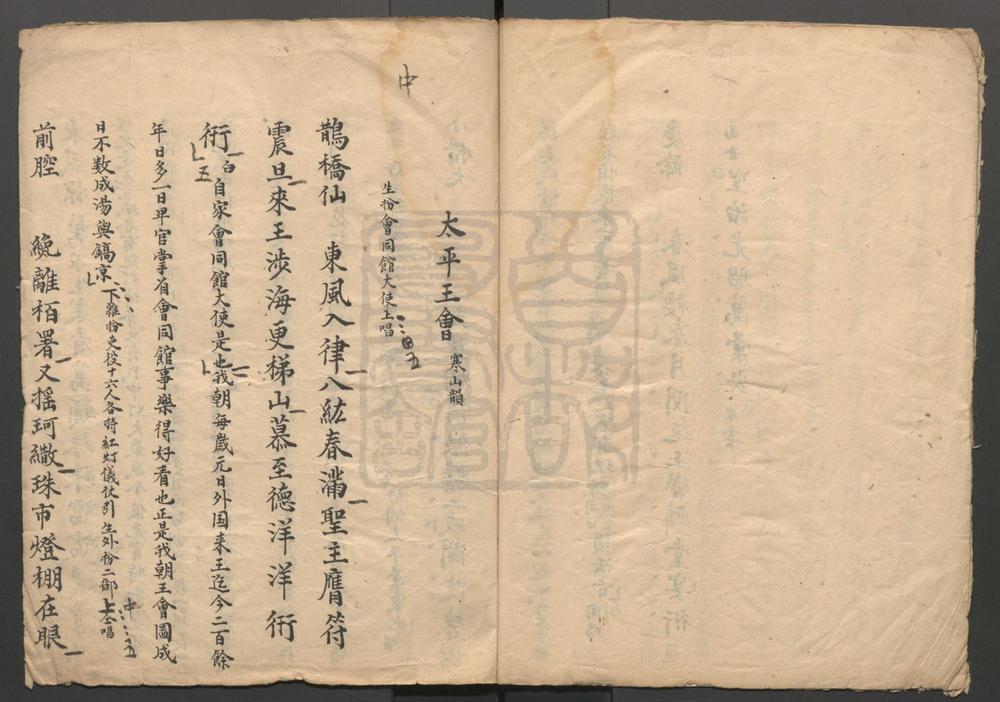 中
太平王會 寒山韻
生扮會同館大使上唱
鵲橋仙 東風入律八紘春滿聖主膺符
震旦來王涉海更梯山慕至德洋洋衎
衎 白 自家會同館大使是也我朝每歲元日外国来王迄今二百餘
年日多一日卑官掌着會同館事樂得好看也正是我朝王會圖成
日不数成湯與鎬京 下雜扮吏役十六人各時紅灯儀仗引生外扮二部上仝唱
前腔 纔離栢署又摇珂繖珠市燈棚在眼